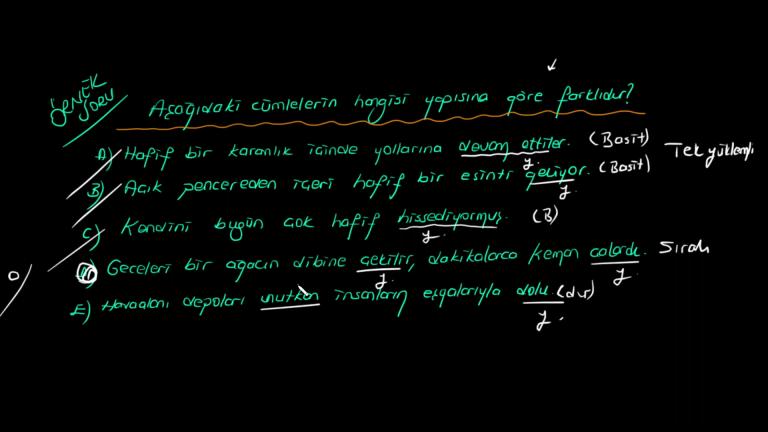 ÖRNEK SORU
Aşağıdaki cümlelerin hangisi yapısına göre farklıdır?
A) Hafif bir karanlık içinde yollarına devam ettiler. (Basit) Tek yüklemli
y.
B) Açık pencereden içeri hafif bir esinti geliyor. (Basit)
y.
C) Kendini bugün çok hafif hissediyormuş. (B)
y.
D) Geceleri bir ağacın dibine çekilir, dakikalarca keman çalardı. Sıralı
y. y.
E) Havaalanı depoları unutkan insanların eşyalarıyla dolu. (dur)
y.